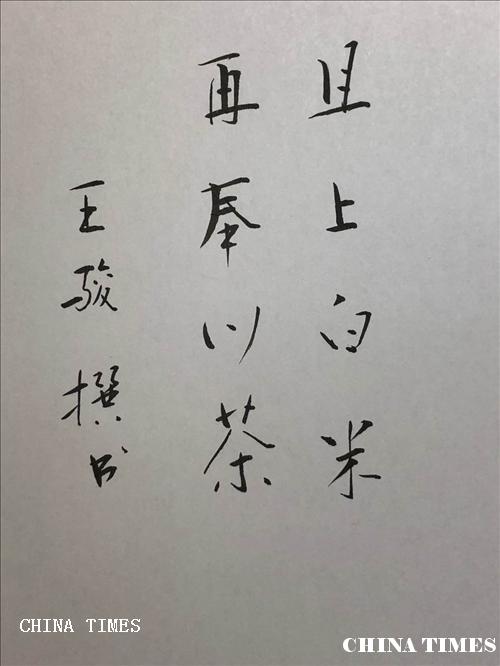 且上白米
再奉以茶
王骏撰书
CHINA TIMES
CHINA TIMES